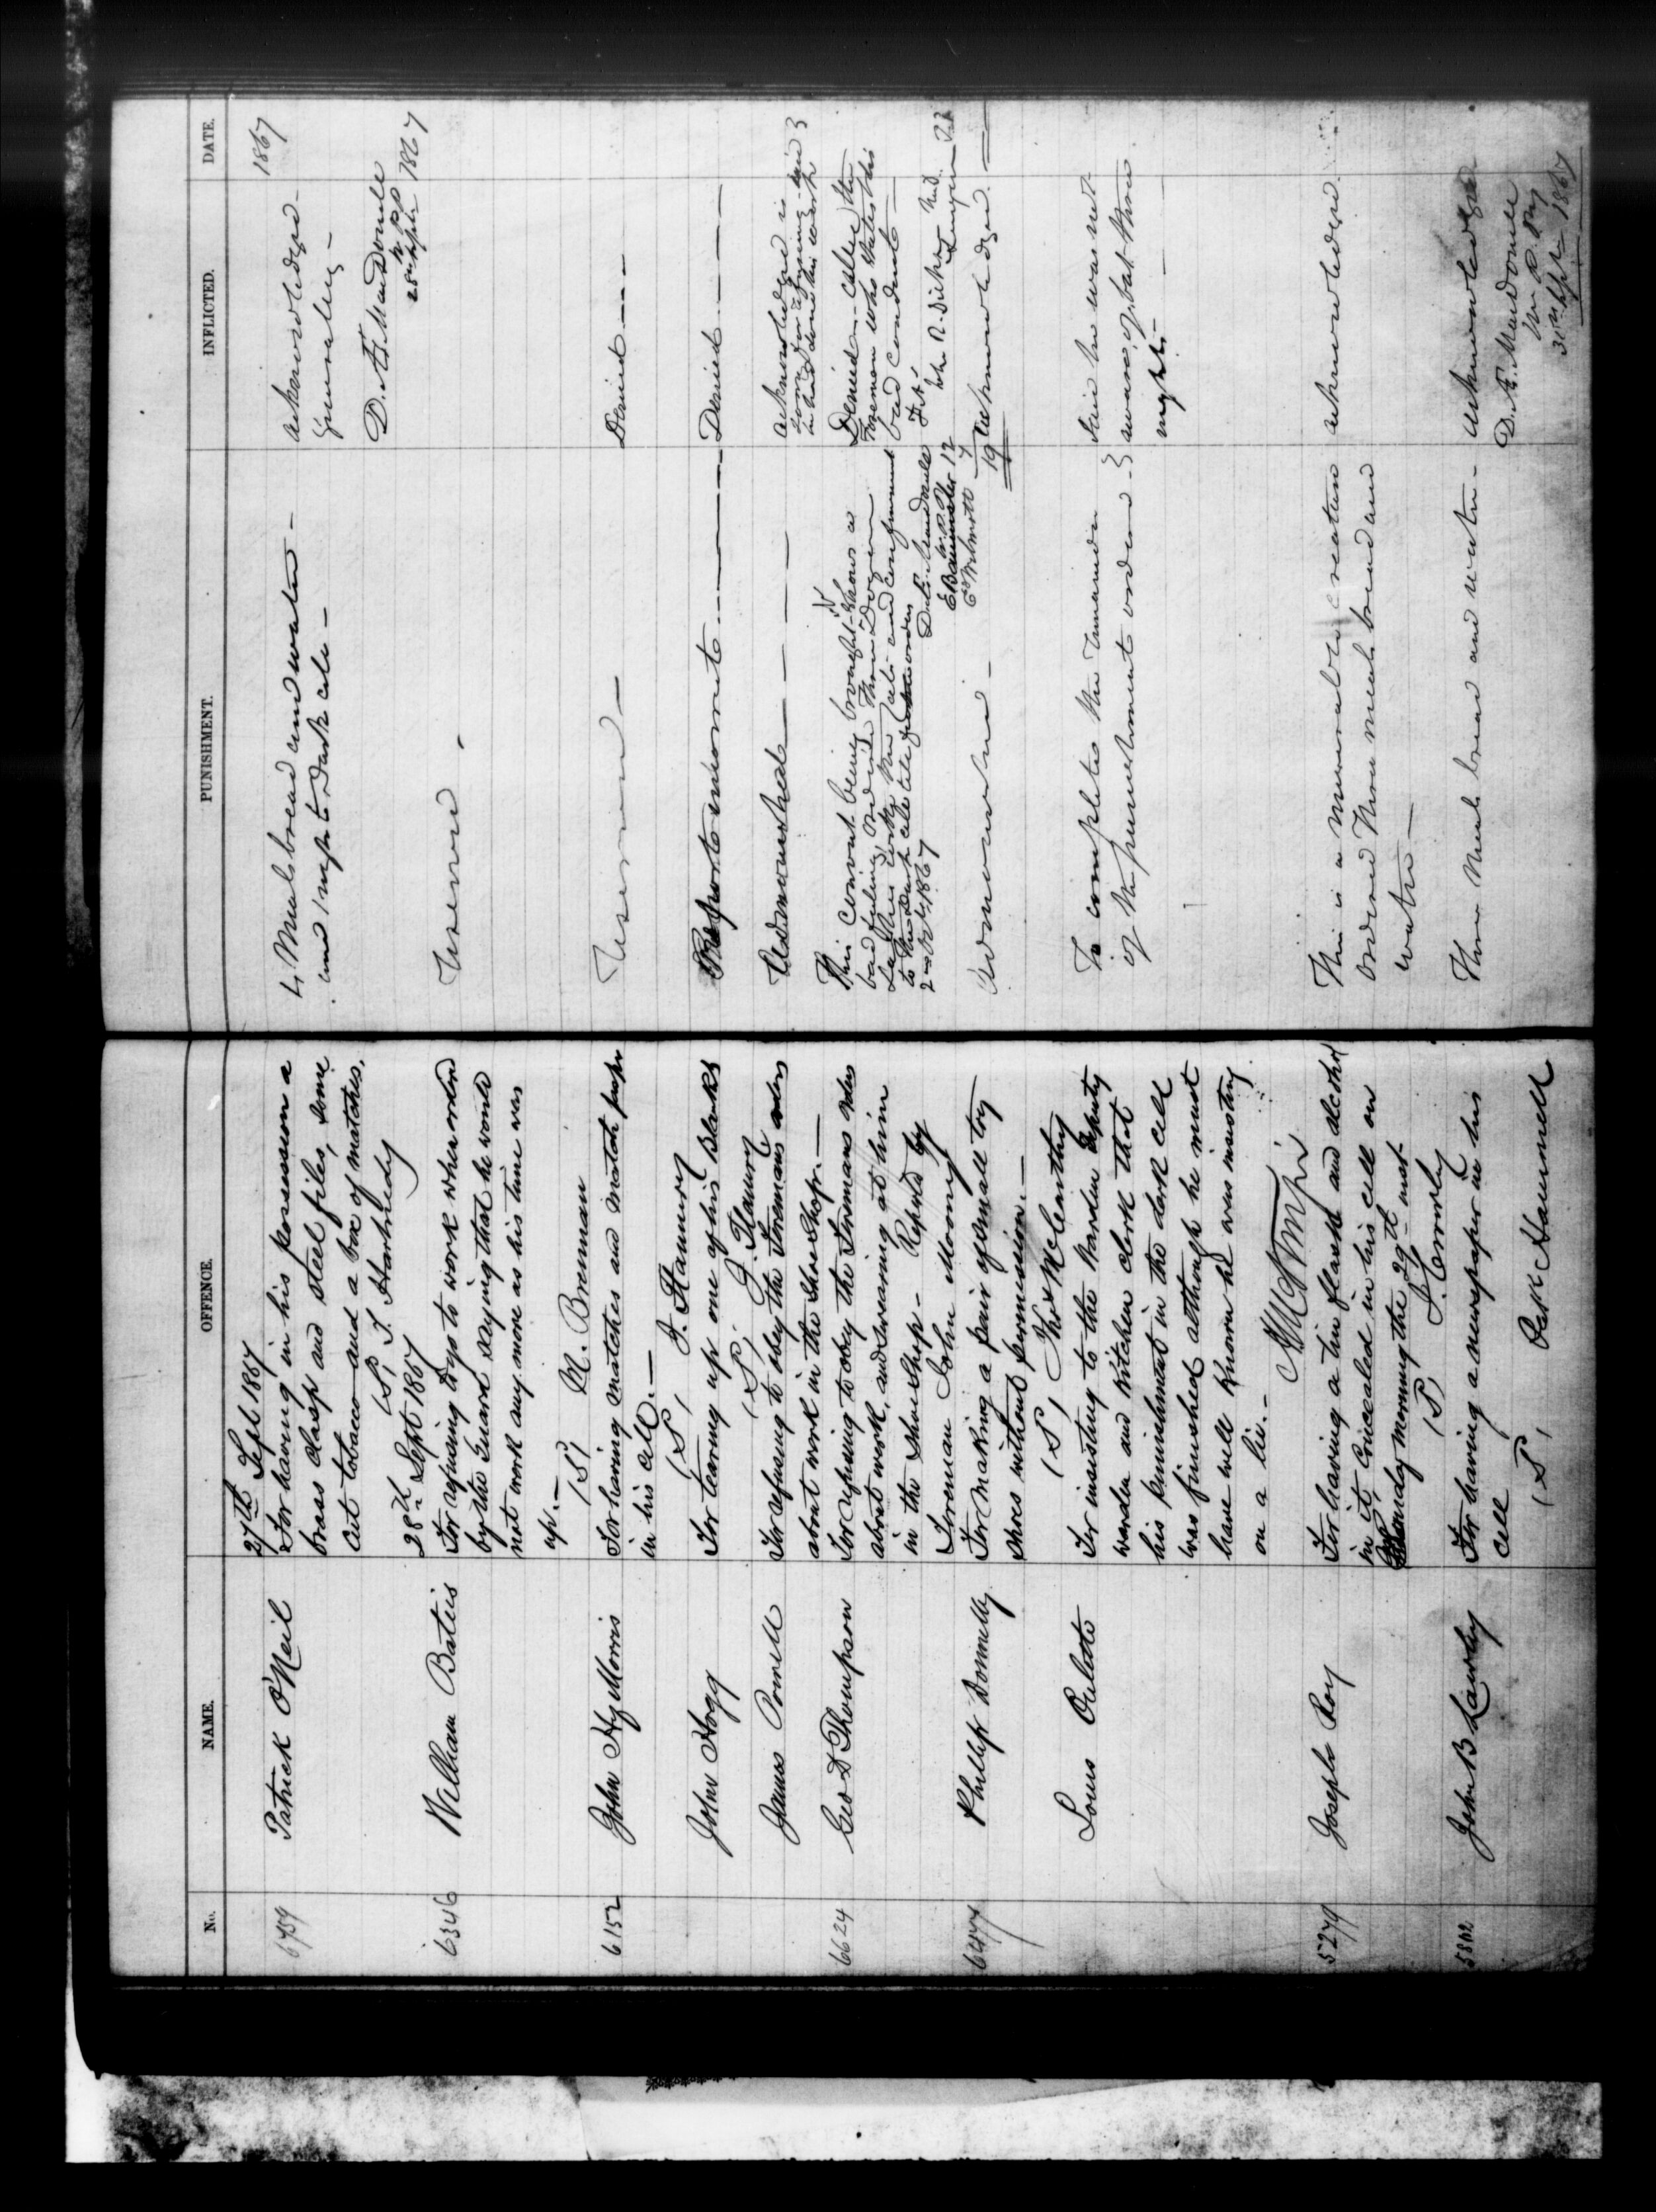 No.
NAME.
OFFENCE.
PUNISHMENT.
INFLICTED.
DATE.
27th Sept 1867
1867
Patrick O'Neil
For having in his possession a
brass clasp and steel files, some
cut tobacco and a box of matches.
(S) T. Hartnedy
4 Meals bread and water -
and 1 night to dark cell -
acknowledged
Generally -
D. Æ. MacDonell
W. P. P.
28th Sept 1867
28th Sept 1867
6346
William Batiis
For refusing to go to work when ordered
by the Guard saying that he would
not work any more as his time was
up. -
(S) M. Brennan
Reserved -
6152
John Hy Morris
For having matches and match paper
in his cell. -
(S) J. Flannery
Reserved -
Denied
John Hogg
For tearing up one of his blankets
(S) J. Flannery
Denied
James Powell
For refusing to obey the Foremans orders
about work in the Shoe Shop. -
Admonished
6624
Geo D Thompson
For refusing to obey the Foremans orders
about work, and swearing at him
in the Shoe Shop - Reported by
Foreman John Mooney
This convict being brought shows a
bad feeling, ordered three Dozen
to the Dark cell
2nd Oct 1867
Denied - called the
Foreman who states his
bad conduct
Phillip Donnelly
For making a pair of small toy
shoes without permission. -
(S) Thos McCarthy
Admonished -
19
Acknowledged
Louis Oulette
For insisting to the Warden deputy
warden and Kitchen clerk that
his punishment in the dark cell
was finished although he must
have well known he was insisting
on a lie. -
To complete the remainder
of the punishment ordered - 3
nights -
Said he was not
aware of that three
5279
Joseph Roy
For having a tin flask and alcohol
in it, concealed in his cell on
Monday morning the 29th inst
(S) J. Cormly
This is a miserable creature
ordered three meals bread and
water -
acknowledged
John B Landry
For having a newspaper in his
cell
(S) Patk Hammell
Three Meals bread and water -
Acknowledged
D. Æ. MacDonell
W. P. Py
30th Sept 1867